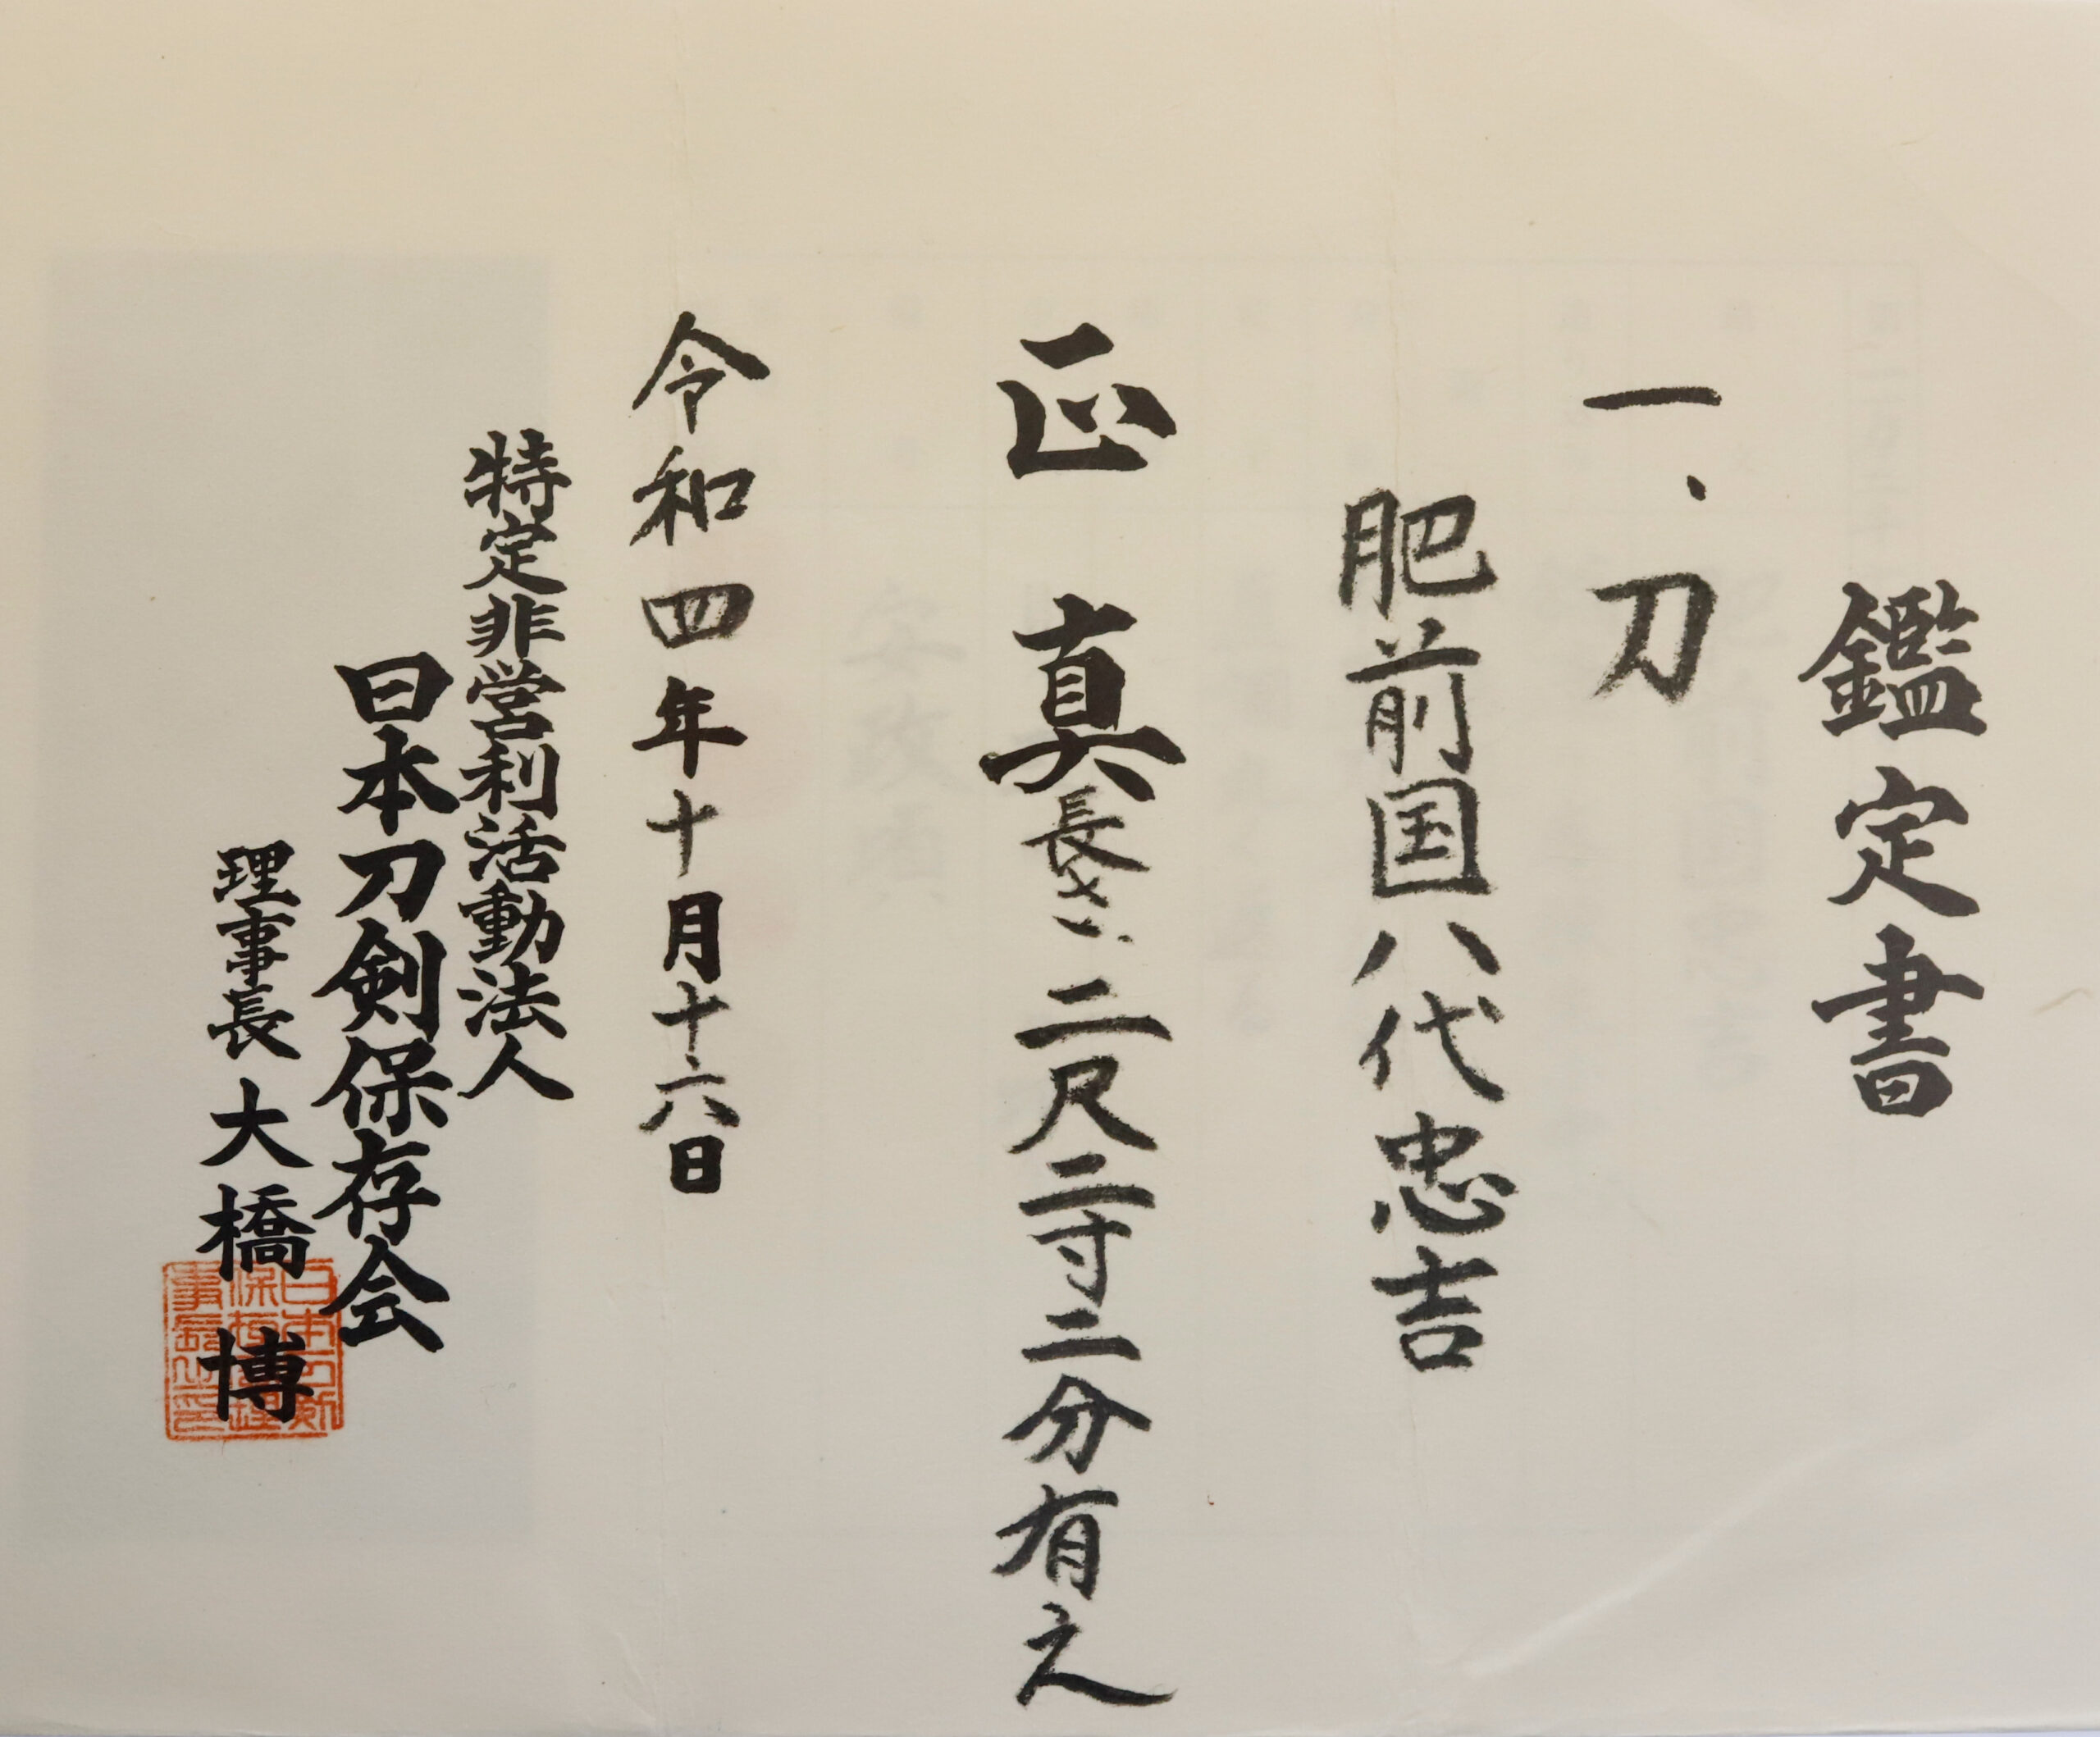 鑑定書
一、刀
肥前国八代忠吉
正真長さ二尺二寸二分有之
令和四年十月十六日
特定非営利活動法人
日本刀剣保存会
理事長 大橋 博